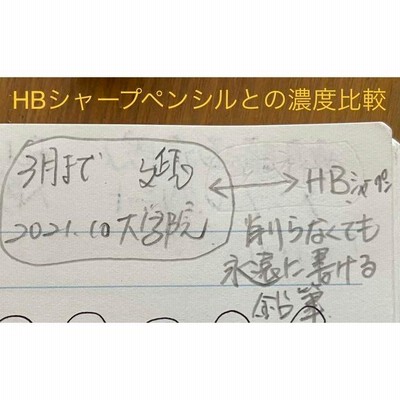 HBシャープペンシルとの濃度比較
3月まで
HBシャーペン
2021.10大学院
削らなくても
永遠に書ける
鉛筆